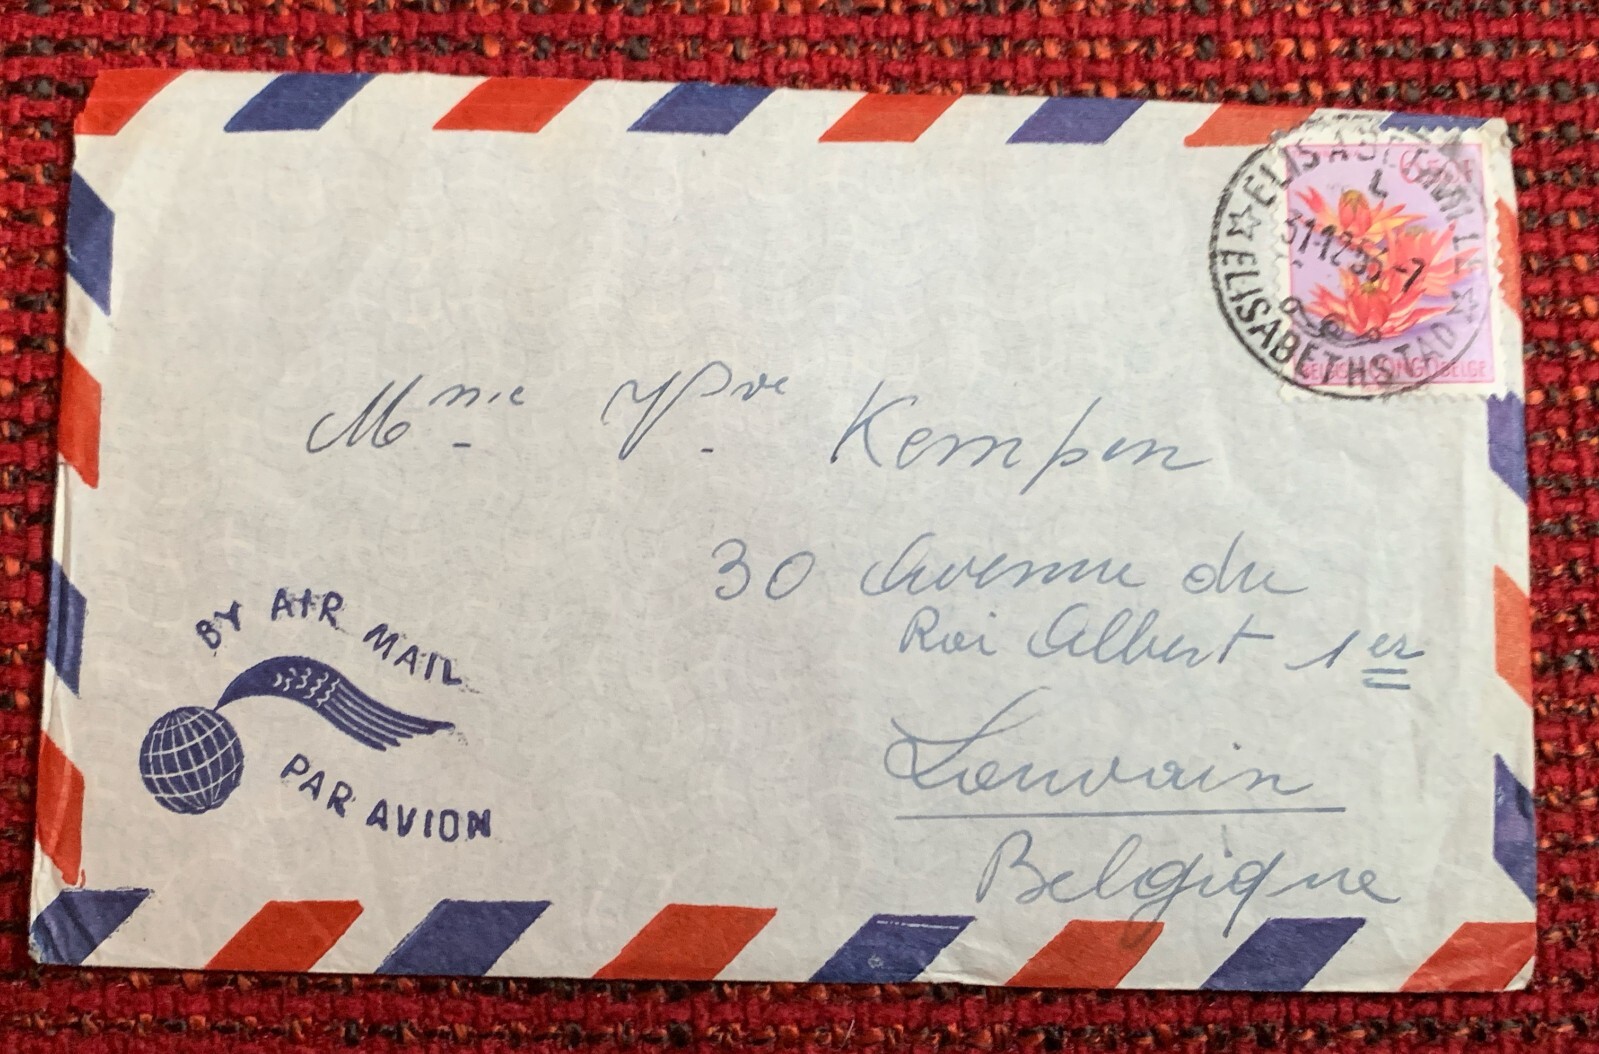 ELISABETHVILLE
6.50F
L
31-12 55-7
ELISABETHSTAD
BELGISCH CONGO BELGE
Mme Vve Kempen
30 Avenue du
Roi Albert 1er
Louvain
Belgique
BY AIR MAIL
PAR AVION